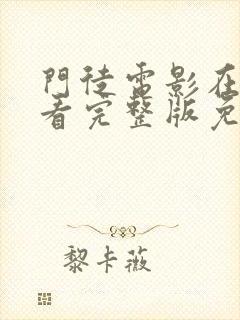 門徒電影在
看完整版免
黎卡薇